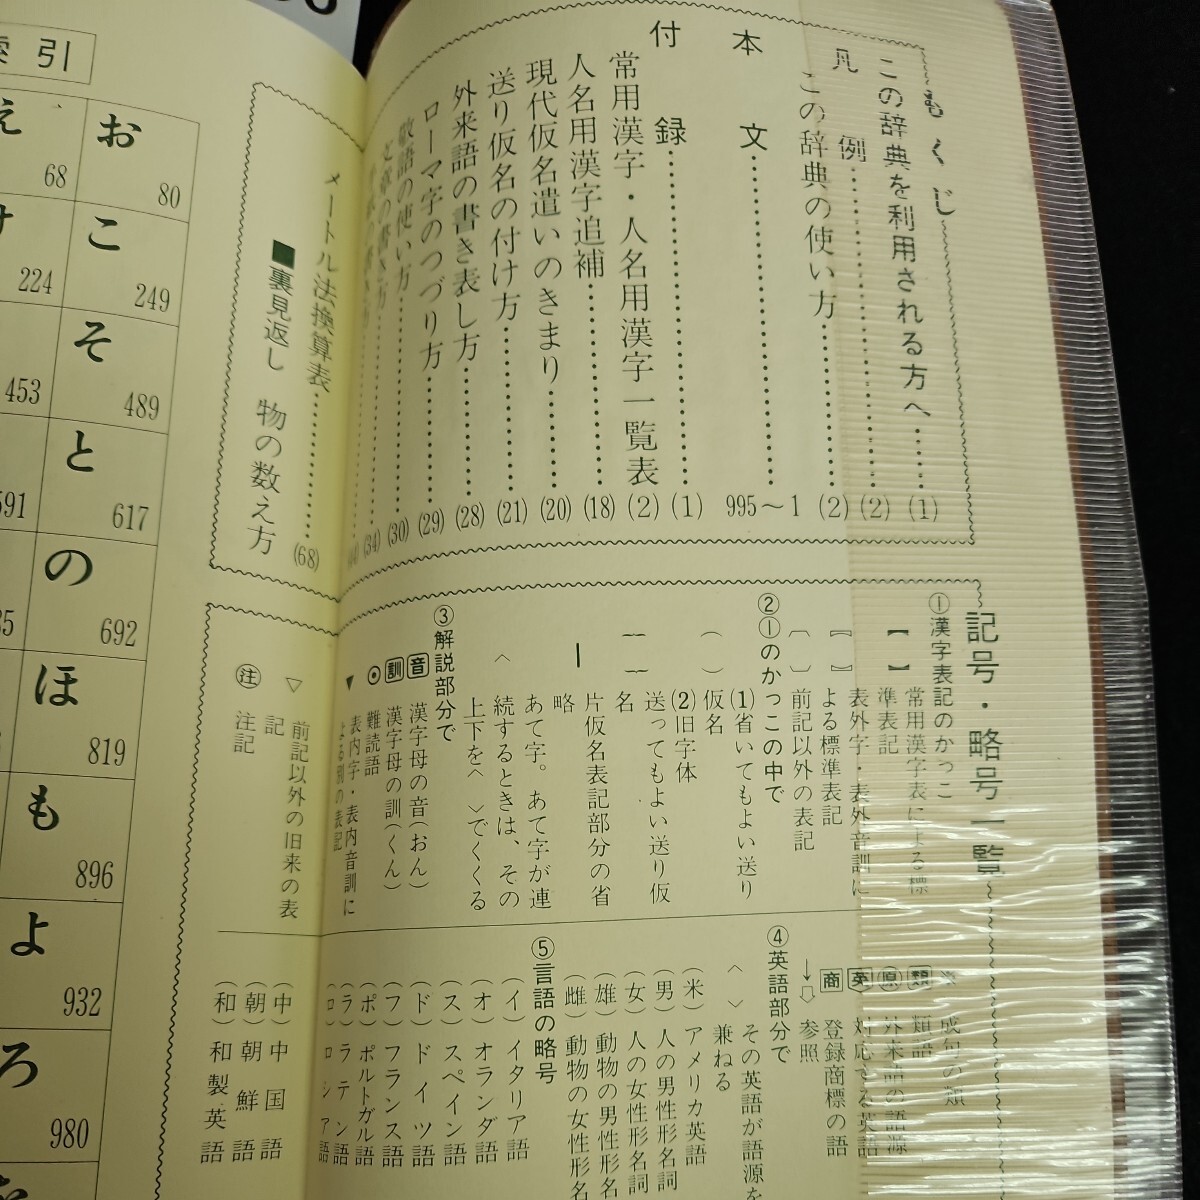 もくじ
この辞典を利用される方へ……(1)
凡例……(2)
この辞典の使い方……(2)
本文……995～1
付録……(1)
常用漢字・人名用漢字一覧表 (2)
人名用漢字追補……(18)
現代仮名遣いのきまり……(20)
送り仮名の付け方……(21)
外来語の書き表し方……(28)
ローマ字のつづり方……(29)
敬語の使い方……(30)
(34)
メートル法換算表……(68)
■裏見返し 物の数え方
記号・略号一覧
①漢字表記のかっこ
【 】 常用漢字表による標
準表記
〖 〗 表外字・表外音訓に
よる標準表記
〔 〕 前記以外の表記
②①のかっこの中で
( ) (1)省いてもよい送り
仮名
(2)旧字体
送ってもよい送り仮
名
― 片仮名表記部分の省
略
〈 あて字。あて字が連
続するときは、その
上下を〈 〉でくくる
③解説部分で
音 漢字母の音(おん)
訓 漢字母の訓(くん)
⊙ 難読語
▼ 表内字・表内音訓に
よる別の表記
▽ 前記以外の旧来の表
記
注 注記
※ 成句の類
類 類語
原 外来語の語源
英 対応する英語
商 登録商標の語
→⇨ 参照
④英語部分で
〈 〉 その英語が語源を
兼ねる
(米) アメリカ英語
(男) 人の男性形名詞
(女) 人の女性形名詞
(雄) 動物の男性形名
(雌) 動物の女性形名
⑤言語の略号
(イ) イタリア語
(オ) オランダ語
(ス) スペイン語
(ド) ドイツ語
(フ) フランス語
(ポ) ポルトガル語
(ラ) ラテン語
(ロ) ロシア語
(中) 中国語
(朝) 朝鮮語
(和) 和製英語
索引
お 80
こ 249
そ 489
と 617
の 692
ほ 819
も 896
よ 932
ろ 980
え 68
け 224
453
591